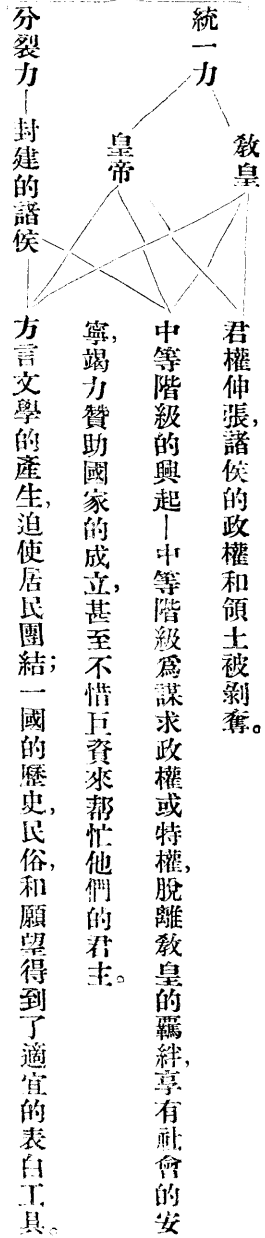 統一力
教皇
皇帝
分裂力—封建的諸侯
君權伸張，諸侯的政權和領土被剝奪。
中等階級的興起—中等階級爲謀求政權或特權，脫離敎皇的羈絆，享有社會的安
寧，竭力贊助國家的成立，甚至不惜巨資來幇忙他們的君主。
方言文學的產生，迫使居民團結；一國的歷史，民俗，和願望得到了適宜的表白工具。